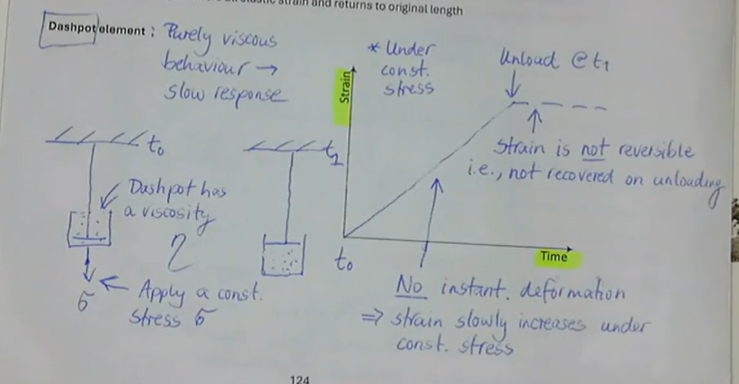 elastic strain and returns to original length
Dashpot element : Purely viscous
behaviour →
slow response
* Under
const.
stress
Unload @ t1
Strain
Strain is not reversible
i.e., not recovered on unloading
t0
t1
Dashpot has
a viscosity
η
t0
Time
σ ← Apply a const.
stress σ
No instant. deformation
⇒ strain slowly increases under
const. stress
124